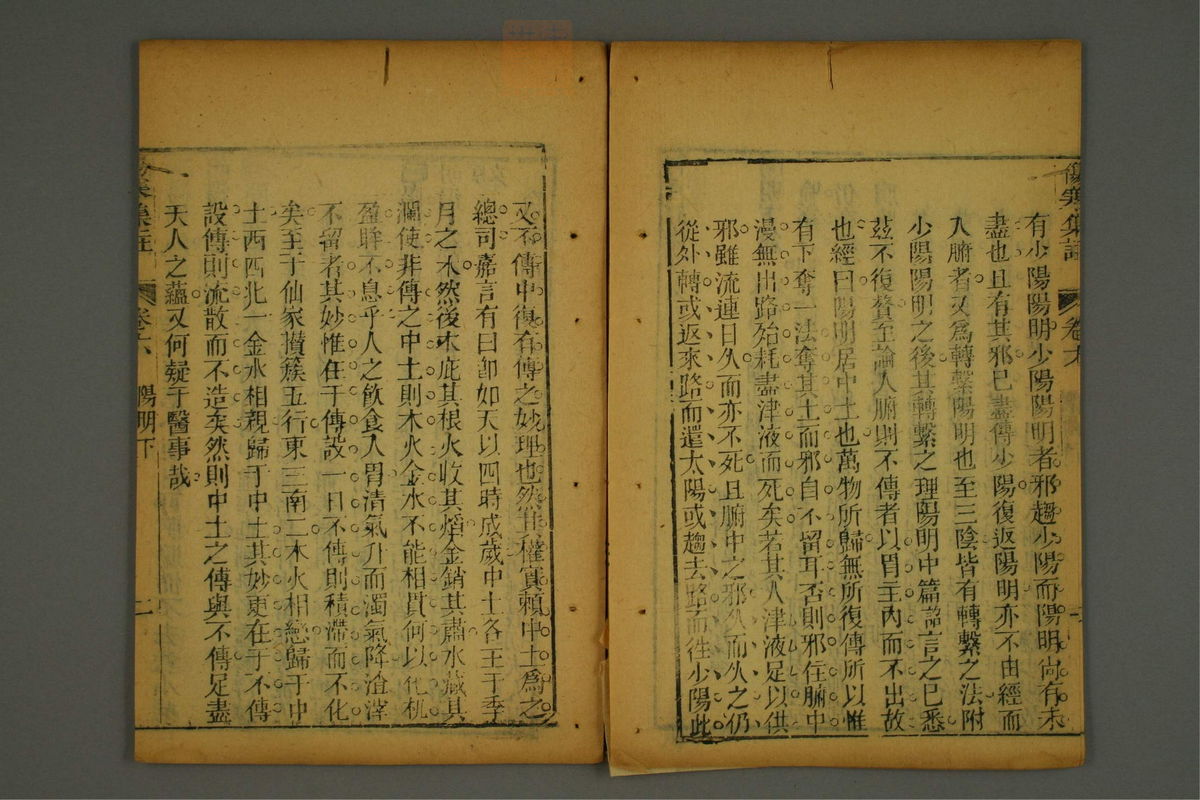 傷寒集註
卷六
有少陽陽明少陽陽明者邪趨少陽而陽明尚有未
盡也且有其邪已盡傳少陽復返陽明亦不由經而
入腑者又爲轉繫陽明也至三陰皆有轉繫之法附
少陽陽明之後其轉繫之理陽明中篇詔言之已悉
玆不復贅至論入腑則不傳者以胃主內而不出故
也經曰陽明居中土也萬物所歸無所復傳所以惟
有下奪一法奪其土而邪自不留耳否則邪住腑中
漫無出路殆耗盡津液而死矣若其人津液足以供
邪雖流連日久而亦不死且腑中之邪久而久之仍
從外轉或返來路而還太陽或趨去路而徃少陽此
又不傳中復有傳之妙理也然其權實賴中土爲之
總司嘉言有曰卽如天以四時成歲中土各王于季
月之末然後木庇其根火收其熖金銷其肅水藏其
瀾使非傳之中土則木火金水不能相貫何以化机
盈眸不息乎人之飲食入胃清氣升而濁氣降渣滓
不留者其妙惟在于傳設一日不傳則積滯而不化
矣至于仙家攢簇五行東三南二木火相戀歸于中
土西四北一金水相親歸于中土其妙更在于不傳
設傳則流散而不造矣然則中土之傳與不傳足盡
天人之蘊又何疑于醫事哉
卷六
陽明下
二